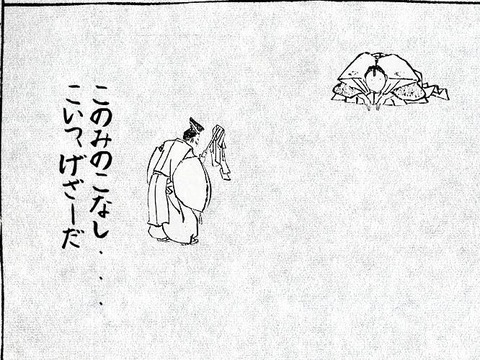 このみのこなし・・・
こいつげざーだ